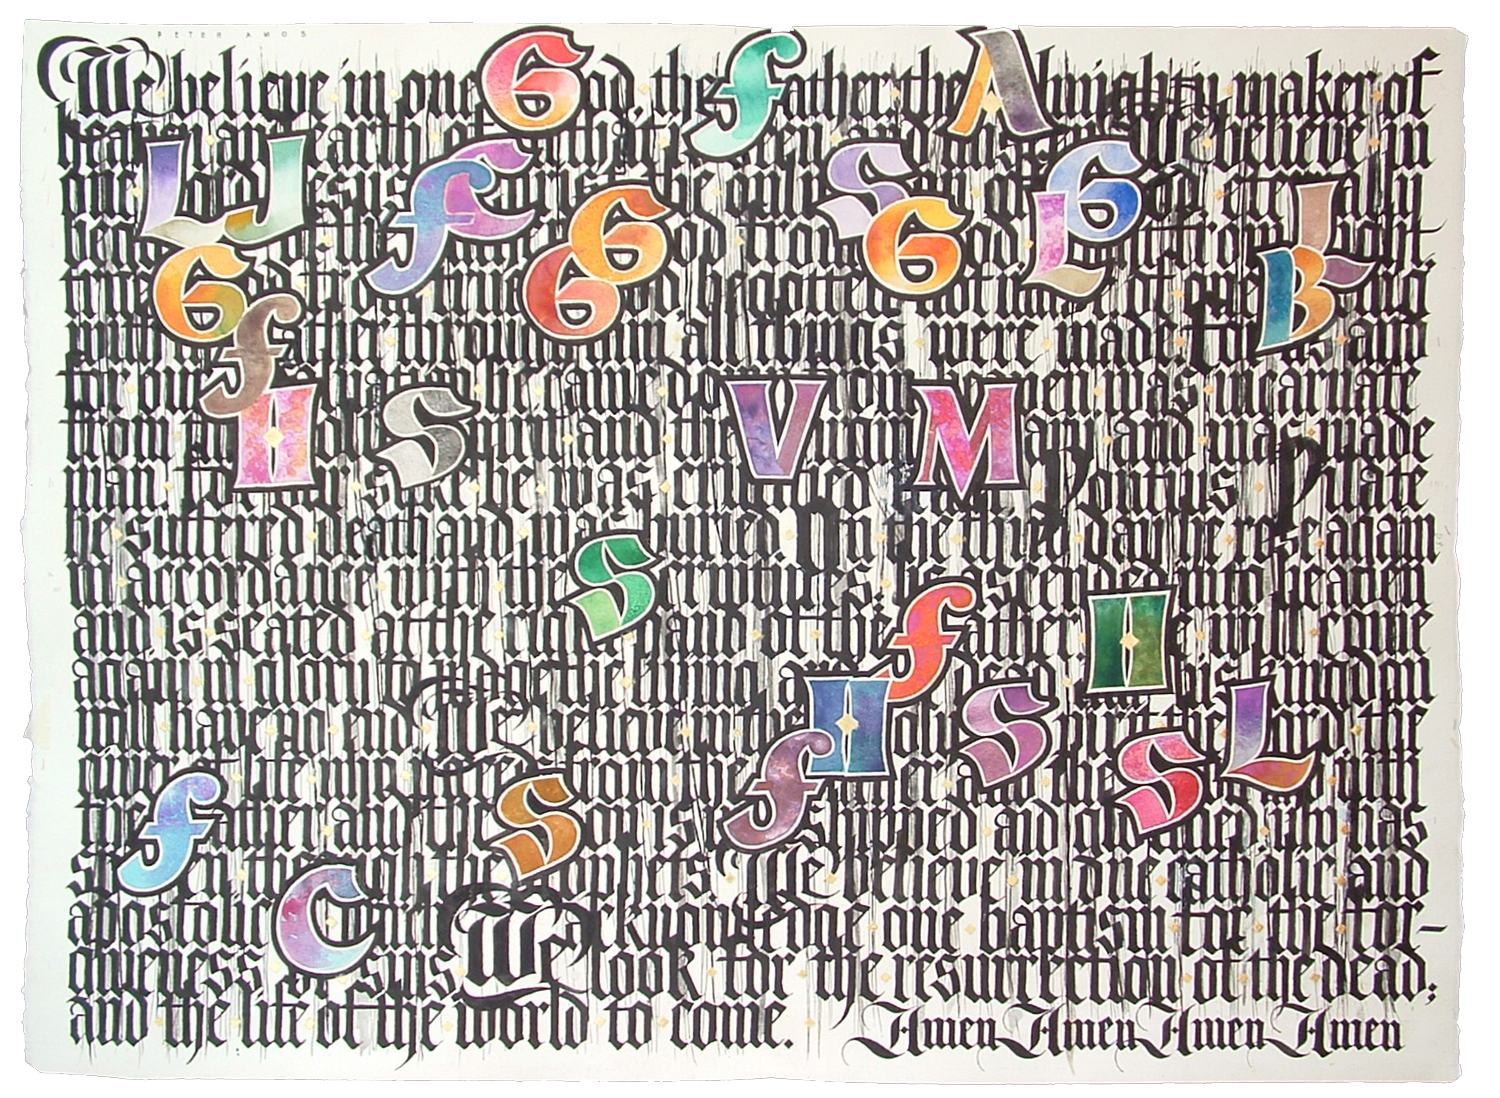 PETER AMOS
We believe in one God, the father, the Almighty, maker of
heaven and earth, of all that is, seen and unseen. We believe in
one Lord Jesus Christ, the only Son of God, eternally
begotten of the father, God from God, Light from Light
true God from true God begotten not made of one Being
with the father through him all things were made. for us and
for our salvation he came down from heaven was incarnate
from the Holy Spirit and the Virgin Mary and was made
man. for our sake he was crucified under Pontius Pilate
he suffered death and was buried. On the third day he rose again
in accordance with the Scriptures; he ascended into heaven
and is seated at the right hand of the father. He will come
again in glory to judge the living and the dead his kingdom
will have no end. We believe in the Holy Spirit, the Lord, the
giver of life who proceeds from the father and the Son with
the father and the Son is worshipped and glorified who has
spoken through the prophets. We believe in one catholic and
apostolic Church We acknowledge one baptism for the for-
giveness of sins We look for the resurrection of the dead;
and the life of the world to come. Amen Amen Amen Amen